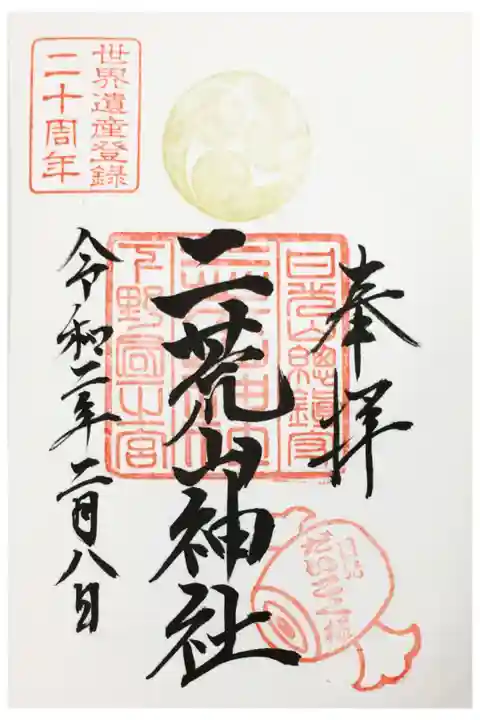 奉拝
日光山總鎮守
二荒山神社
下野國一之宮
令和二年二月八日
世界遺産登録
二十周年
日光
だいこく様